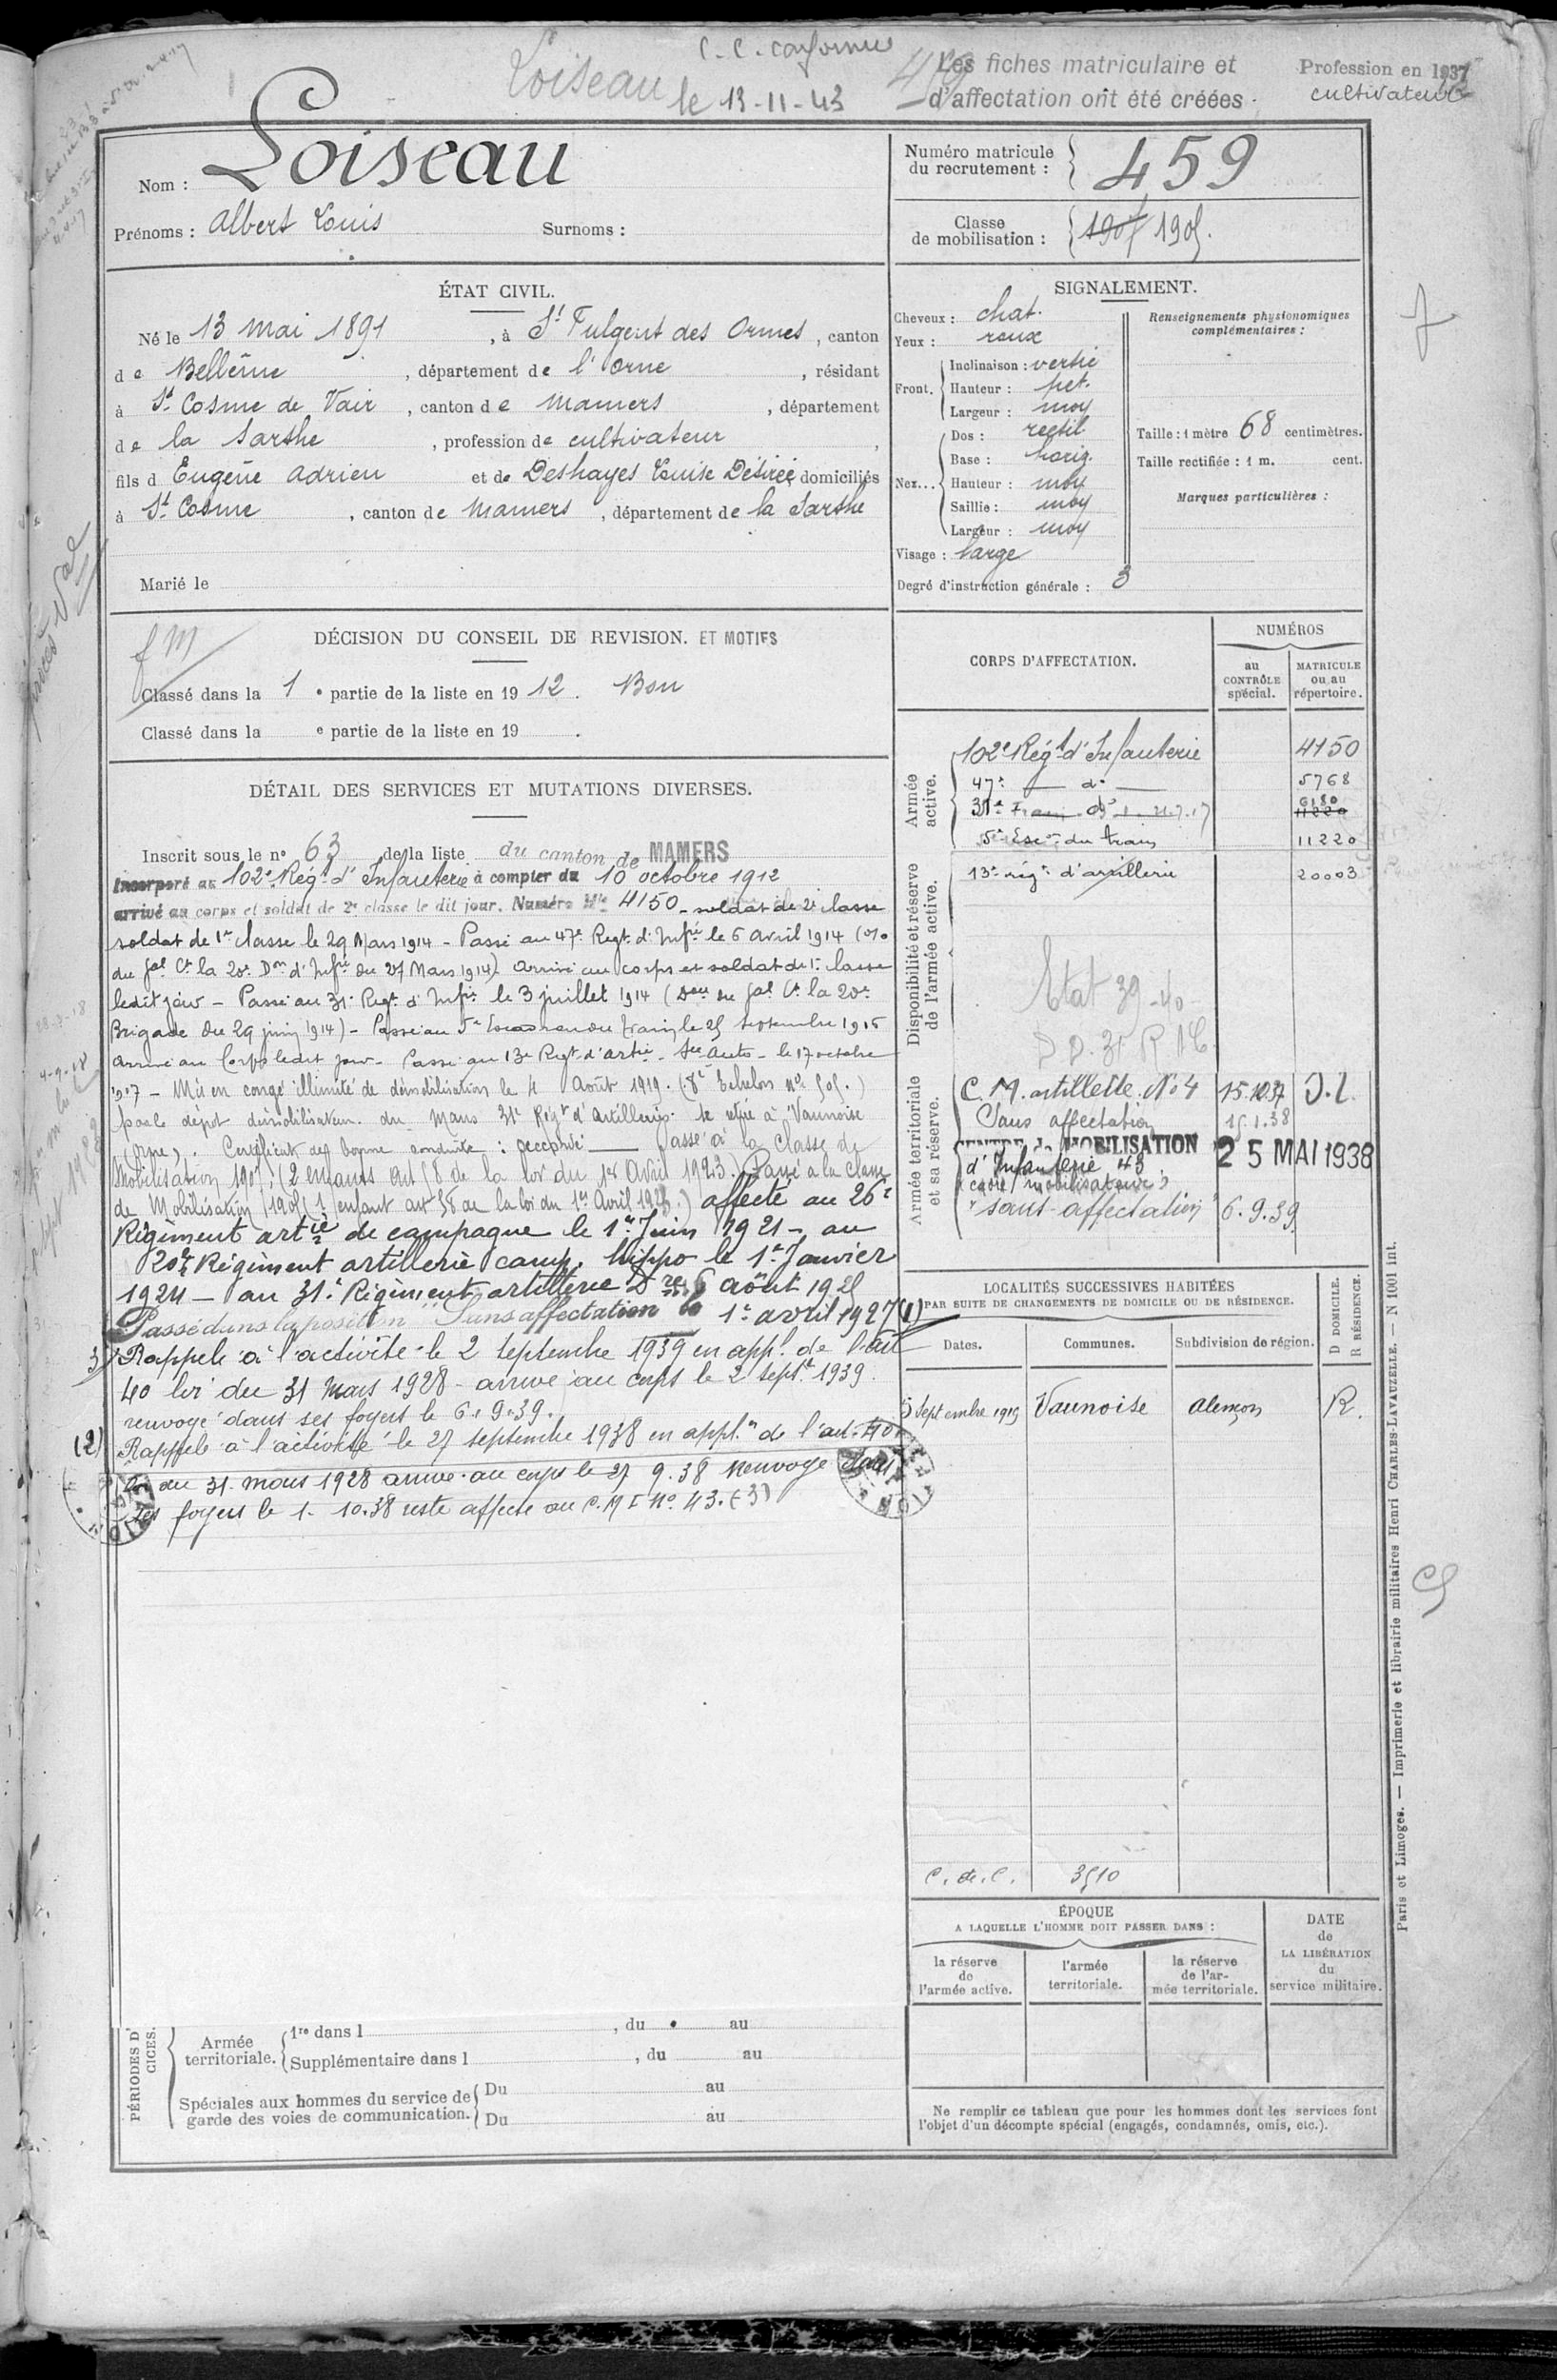 C. C. conforme
Loiseau le 13-11-43
Les fiches matriculaire et
d'affectation ont été créées.
Profession en 1937
cultivateur
Nom : Loiseau
Prénoms : Albert Louis Surnoms :
Numéro matricule du recrutement : 459
Classe de mobilisation : 1905.
ÉTAT CIVIL.
Né le 13 mai 1891, à St Fulgent des Ormes, canton
de Bellême, département de l'Orne, résidant
à St Cosme de Vair, canton de Mamers, département
de la Sarthe, profession de cultivateur,
fils d Eugène Adrien et de Deshayes Louise Désirée domiciliés
à St Cosme, canton de Mamers, département de la Sarthe
Marié le
SIGNALEMENT.
Cheveux : chat.
Yeux : roux
Front. Inclinaison : vertic
Hauteur : pet.
Largeur : moy
Nez... Dos : rectil
Base : horiz.
Hauteur : moy
Saillie : moy
Largeur : moy
Visage : large
Degré d'instruction générale : 3
Renseignements physionomiques complémentaires :
Taille : 1 mètre 68 centimètres.
Taille rectifiée : 1 m. cent.
Marques particulières :
DÉCISION DU CONSEIL DE REVISION. ET MOTIFS
Classé dans la 1e partie de la liste en 1912. Bon
Classé dans la e partie de la liste en 19 .
DÉTAIL DES SERVICES ET MUTATIONS DIVERSES.
Inscrit sous le n° 63 de la liste du canton de MAMERS
Incorporé au 102e Régt d'Infanterie à compter du 10 octobre 1912
arrivé au corps et soldat de 2e classe le dit jour. Numéro Mle 4150 - soldat de 2e classe
soldat de 1re classe le 29 Mars 1914 - Passé au 47e Regt. d'Infie le 6 avril 1914
du Gal Ct la 20e Don d'Infie du 27 Mars 1914). Arrivé au corps et soldat de 1e classe
ledit jour - Passé au 31e Regt d'Infie le 3 juillet 1914 (Don du Gal Ct la 20e
Brigade du 29 juin 1914) - Passé au 5e Escadron du train le 25 septembre 1915
Arrivé au Corps ledit jour - Passé au 13e Regt d'artie - Sce Auto - le 17 octobre
1917 - Mis en congé illimité de démobilisation le 4 Août 1919. (8e Echelon No 505.)
par le dépôt démobilisateur du Mans 31e Régt d'artillerie. Se retire à Vaunoise
(Orne). Certificat de bonne conduite : accordé Passé à la Classe de
Mobilisation 1907, (2 enfants art 58 de la loi du 1er Avril 1923.) Passé à la Classe
de Mobilisation 1905 (1 enfant art 58 de la loi du 1er Avril 1923.) affecté au 26e
Régiment artie de campagne le 1er Juin 1921 - au
20e Régiment artillerie camp. hippo le 1er Janvier
1924 - au 31e Régiment artillerie Dre 6 août 1925
Passé dans la position "Sans affectation" le 1e avril 1927 (1)
3) Rappelé à l'activité le 2 septembre 1939 en appl. de l'art
40 loi du 31 Mars 1928 - arrivé au corps le 2 sept. 1939.
renvoyé dans ses foyers le 6.9.39.
(2) Rappelé à l'activité le 27 septembre 1938 en appl.n de l'art. 40
loi du 31 mars 1928 arrivé au corps le 27.9.38 Renvoyé dans
ses foyers le 1-10.38 reste affecté au C.M I No 43. (3)
CORPS D'AFFECTATION.
NUMÉROS
au CONTRÔLE spécial.
MATRICULE ou au répertoire.
Armée active.
102e Régt d'Infanterie 4150
47e d° 5768
31e d° 6180 11220
5e Escon du train 11220
Disponibilité et réserve de l'armée active.
13e régt d'artillerie 20003
Etat 39-40
Armée territoriale et sa réserve.
C. M. artillerie No 4 15.10.37
Sans affectation 15.1.38
CENTRE de MOBILISATION 25 MAI 1938
d'Infanterie 43
"sans affectation" 6.9.39
LOCALITÉS SUCCESSIVES HABITÉES
PAR SUITE DE CHANGEMENTS DE DOMICILE OU DE RÉSIDENCE.
D DOMICILE. R RÉSIDENCE.
Dates. Communes. Subdivision de région.
5 Septembre 1919 Vaunoise Alençon R.
C. de. C. 3510
ÉPOQUE
A LAQUELLE L'HOMME DOIT PASSER DANS :
la réserve de l'armée active.
l'armée territoriale.
la réserve de l'armée territoriale.
DATE de LA LIBÉRATION du service militaire.
Ne remplir ce tableau que pour les hommes dont les services font
l'objet d'un décompte spécial (engagés, condamnés, omis, etc.).
PÉRIODES D' CICES.
Armée territoriale. 1re dans l , du au
Supplémentaire dans l , du au
Spéciales aux hommes du service de garde des voies de communication. Du au
Du au
Paris et Limoges. — Imprimerie et librairie militaires Henri CHARLES-LAVAUZELLE. — N 1001 int.